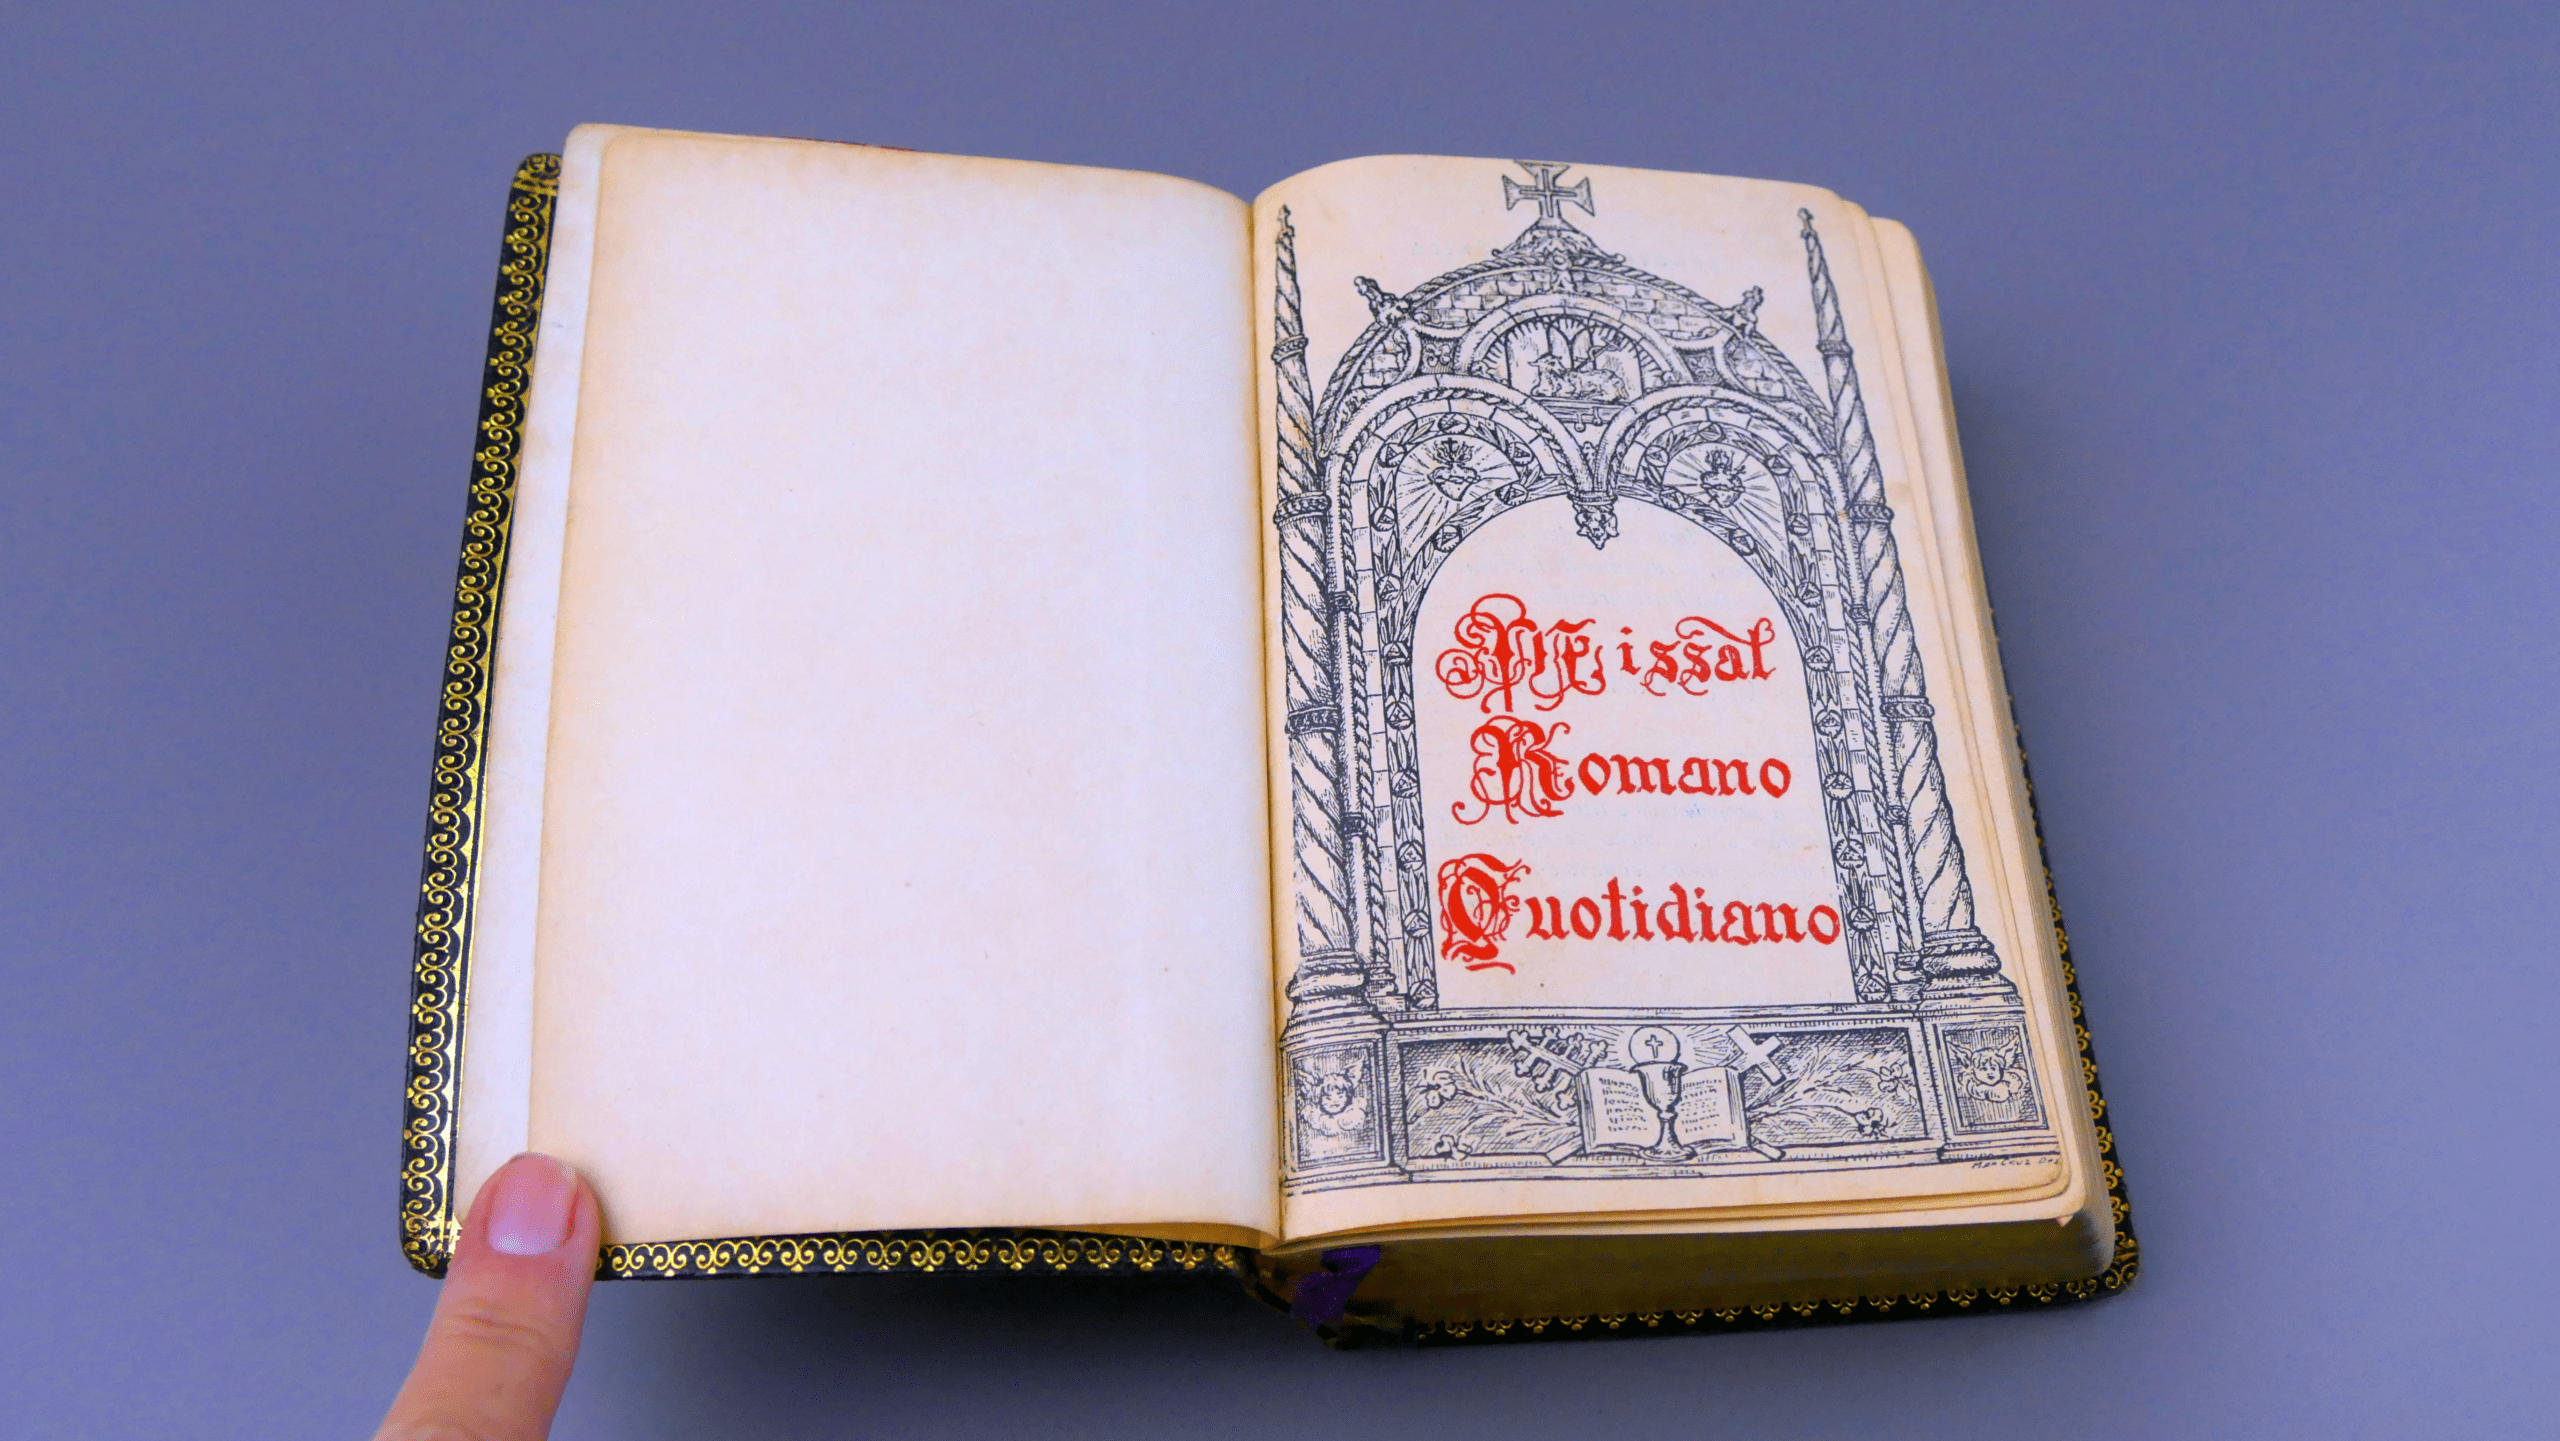 Missal
Romano
Quotidiano